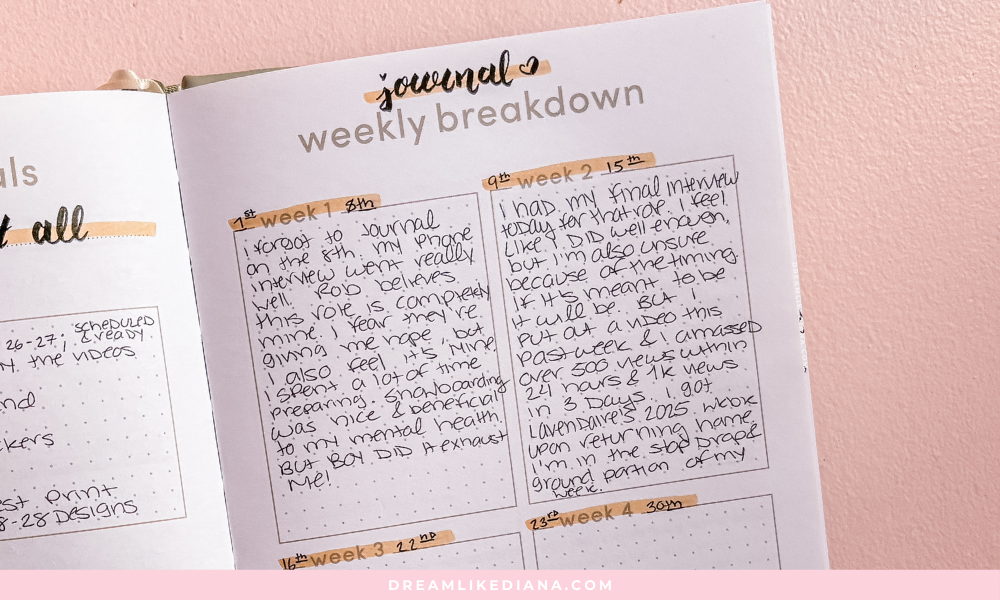 als
t all
26-27; scheduled
& ready.
the videos
nd
ckers
est print
8-28 Designs
journal ♡
weekly breakdown
1st week 1 8th
i forgot to journal
on the 8th. my phone
interview went really
well. Rob believes
this role is completely
mine. i fear they're
giving me hope, but
i also feel it's mine.
i spent a lot of time
preparing. snowboarding
was nice & beneficial
to my mental health
But BOY DID it exhaust
me!
9th week 2 15th
i had my final interview
today for that role. i feel
like i DID well enough,
but i'm also unsure
because of the timing.
if it's meant to be
it will be. But i
put out a video this
past week & i amassed
over 500 views within
24 hours & 1k views
in 3 Days. i got
Lavendaire's 2025 wbook
upon returning home.
i'm in the stop Drop &
ground portion of my
week.
16th week 3 22nd
23rd week 4 30th
DREAMLIKEDIANA.COM